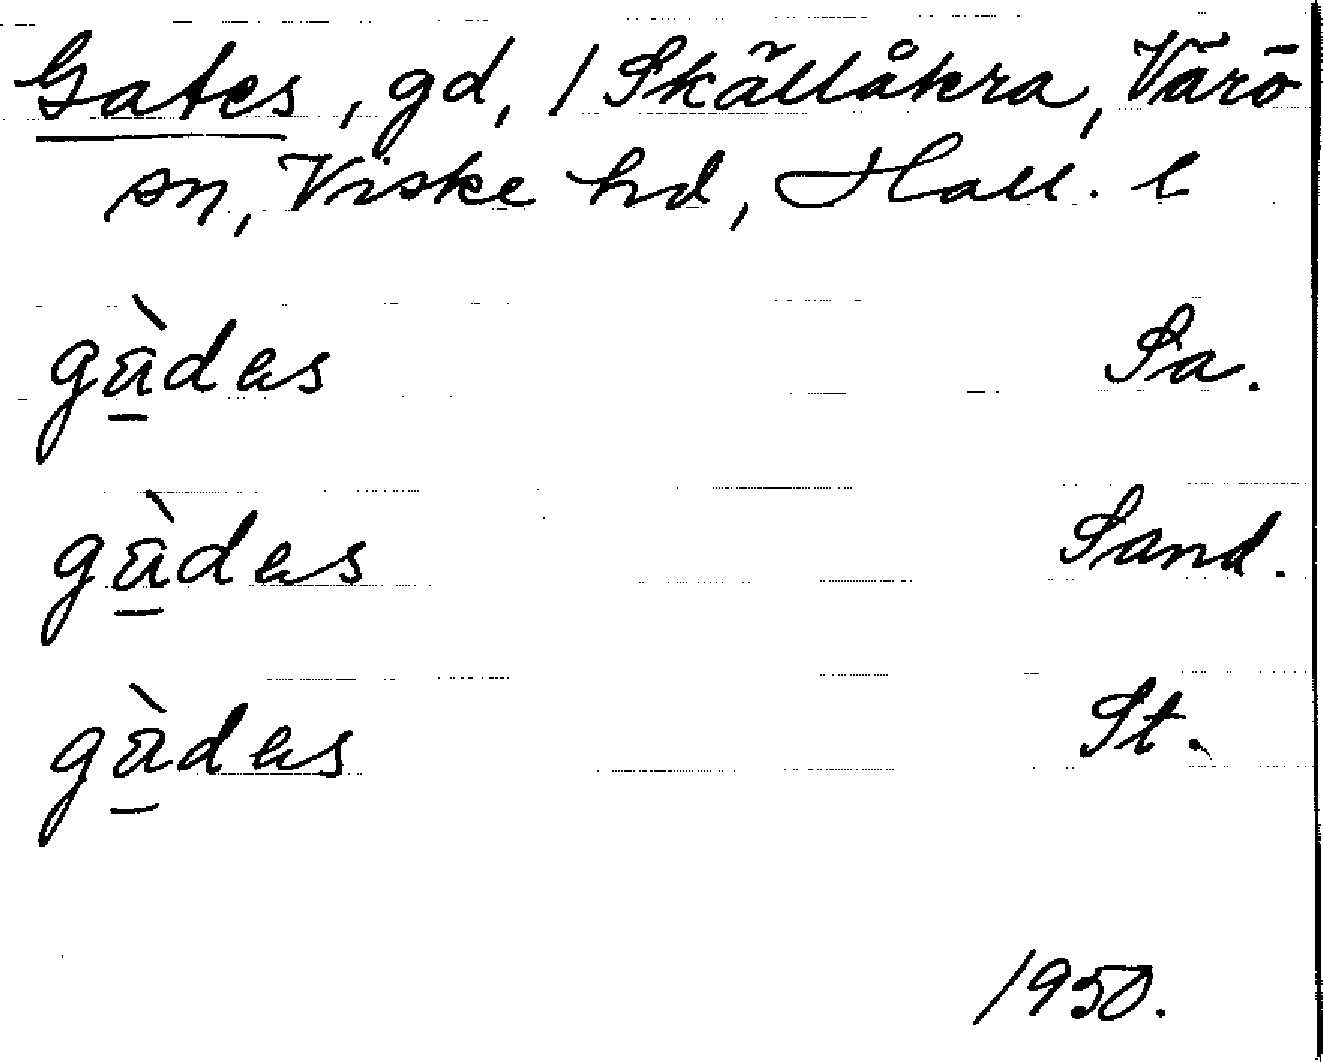 Gates, gd, / Skällåkra, Värö
sn, Viske hd, Hall. l
gàdas Sa.
gàdas Sand.
gàdas St.
1950.